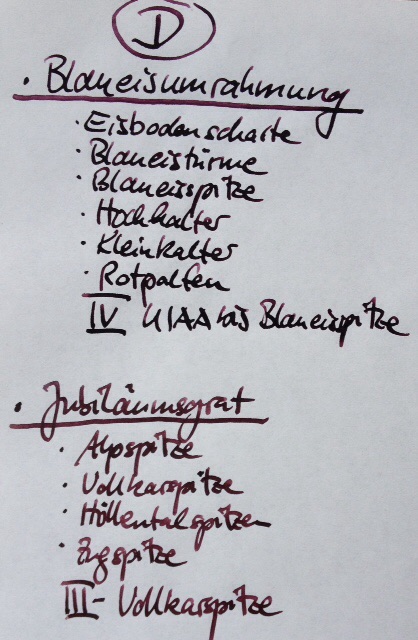 D
· Blaueisumrahmung
· Eisbodenscharte
· Blaueistürme
· Blaueisspitze
· Hochkalter
· Kleinkalter
· Rotpalfen
IV UIAA bis Blaueisspitze
· Jubiläumsgrat
· Alpspitze
· Vollkarspitze
· Höllentalspitzen
· Zugspitze
III - Vollkarspitze